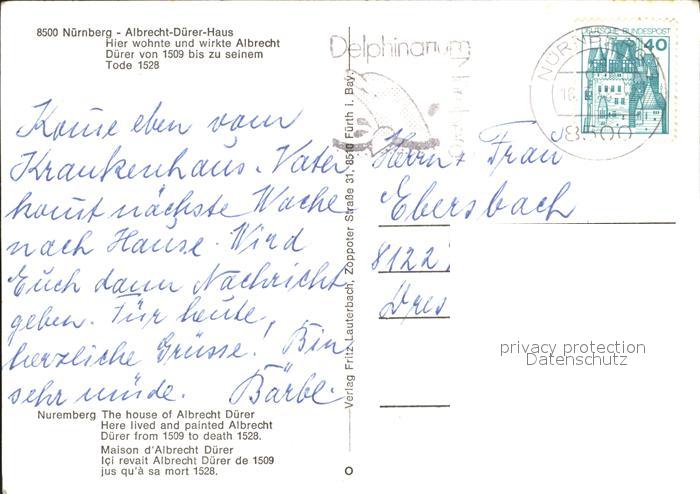 8500 Nürnberg - Albrecht-Dürer-Haus
Hier wohnte und wirkte Albrecht
Dürer von 1509 bis zu seinem
Tode 1528
Komme eben vom
Krankenhaus. Vater
kommt nächste Woche
nach Hause. Wird
Euch dann Nachricht
geben. Für heute,
herzliche Grüsse! Bin
sehr müde. Bärbel
Nuremberg The house of Albrecht Dürer
Here lived and painted Albrecht
Dürer from 1509 to death 1528.
Maison d'Albrecht Dürer
Içi revait Albrecht Dürer de 1509
jus qu'à sa mort 1528.
Verlag Fritz Lauterbach, Zoppoter Straße 31, 8510 Fürth i. Bay.
Delphinarium
DEUTSCHE BUNDESPOST
40
NÜRNBERG
8500
Herrn + Frau
Ebersbach
8122
Dres
privacy protection
Datenschutz